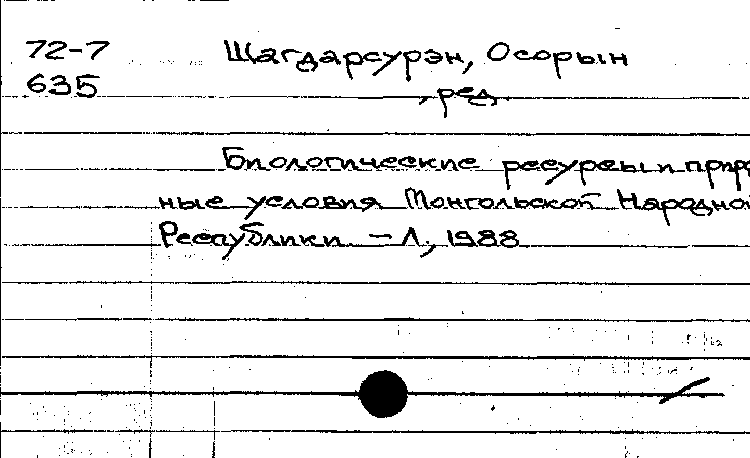 72-7 Щагдарсурэн, Осорын
635 , ред.
Биологические ресурсы и природ
ные условия Монгольской Народной
Республики. - Л., 1988